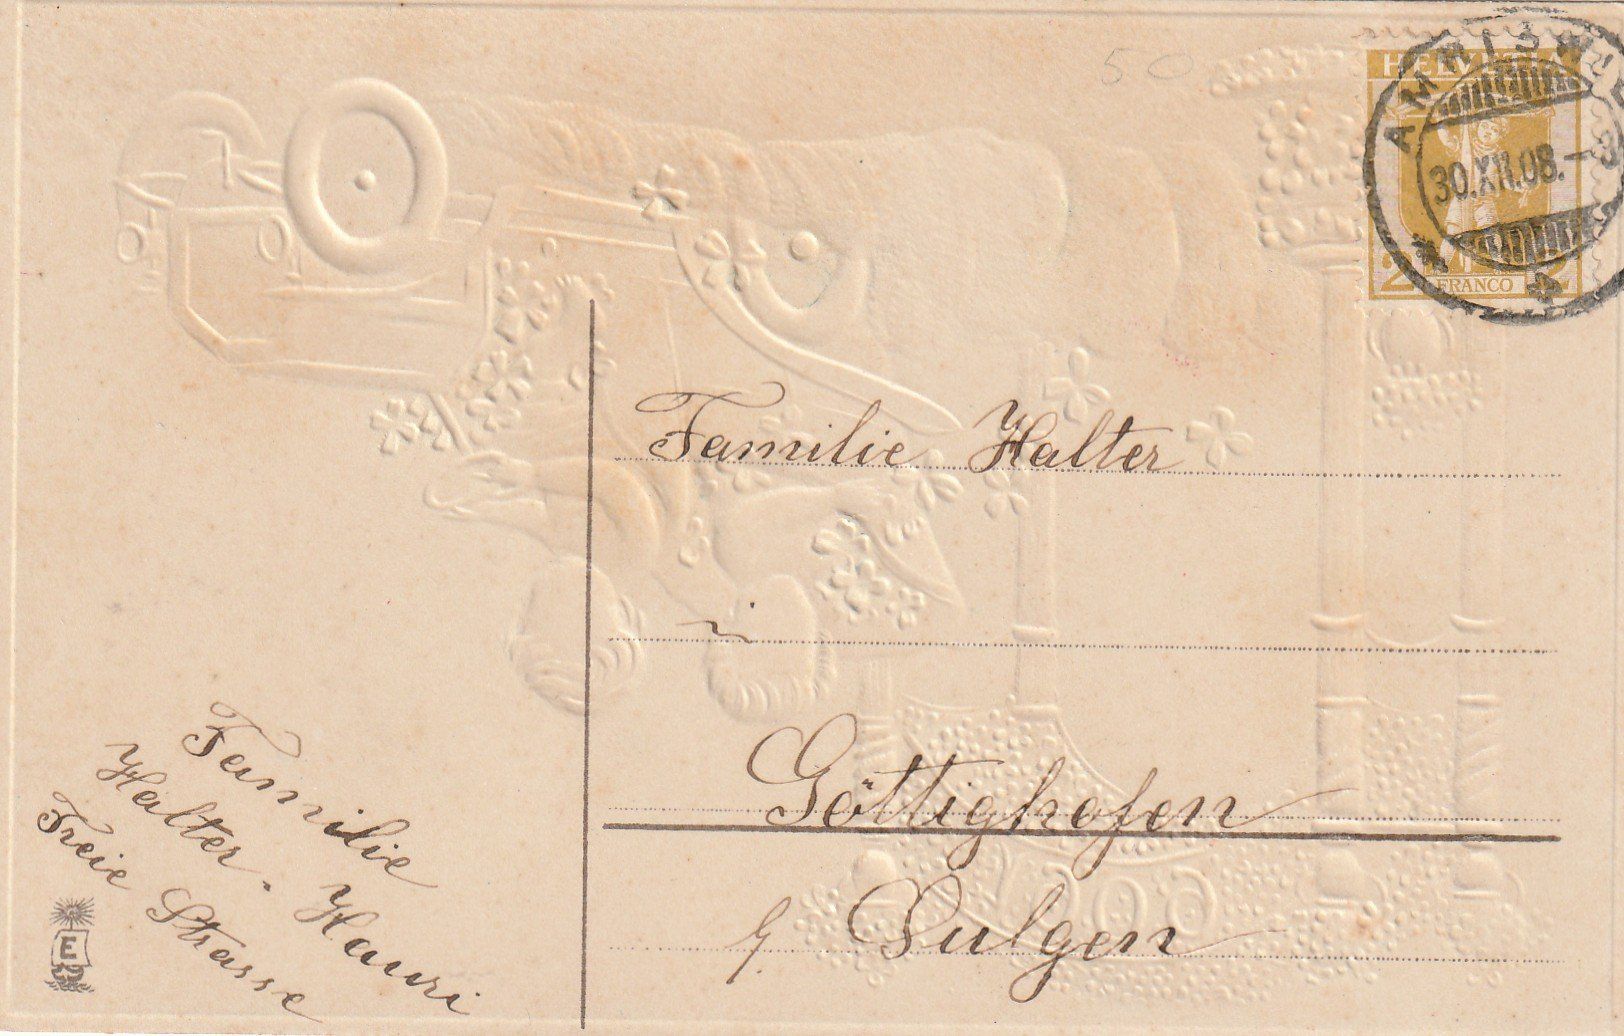 50
HELVETIA
AMRISWIL
30.XII.08.-8
2
FRANCO
2
Familie Halter
in
Göttighofen
b. Sulgen
Familie
Halter. Hauri
Freie Strasse
E